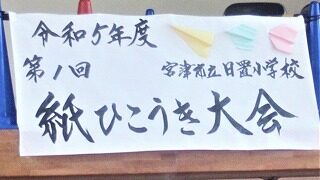 令和5年度
第1回
宮津市立日置小学校
紙ひこうき大会